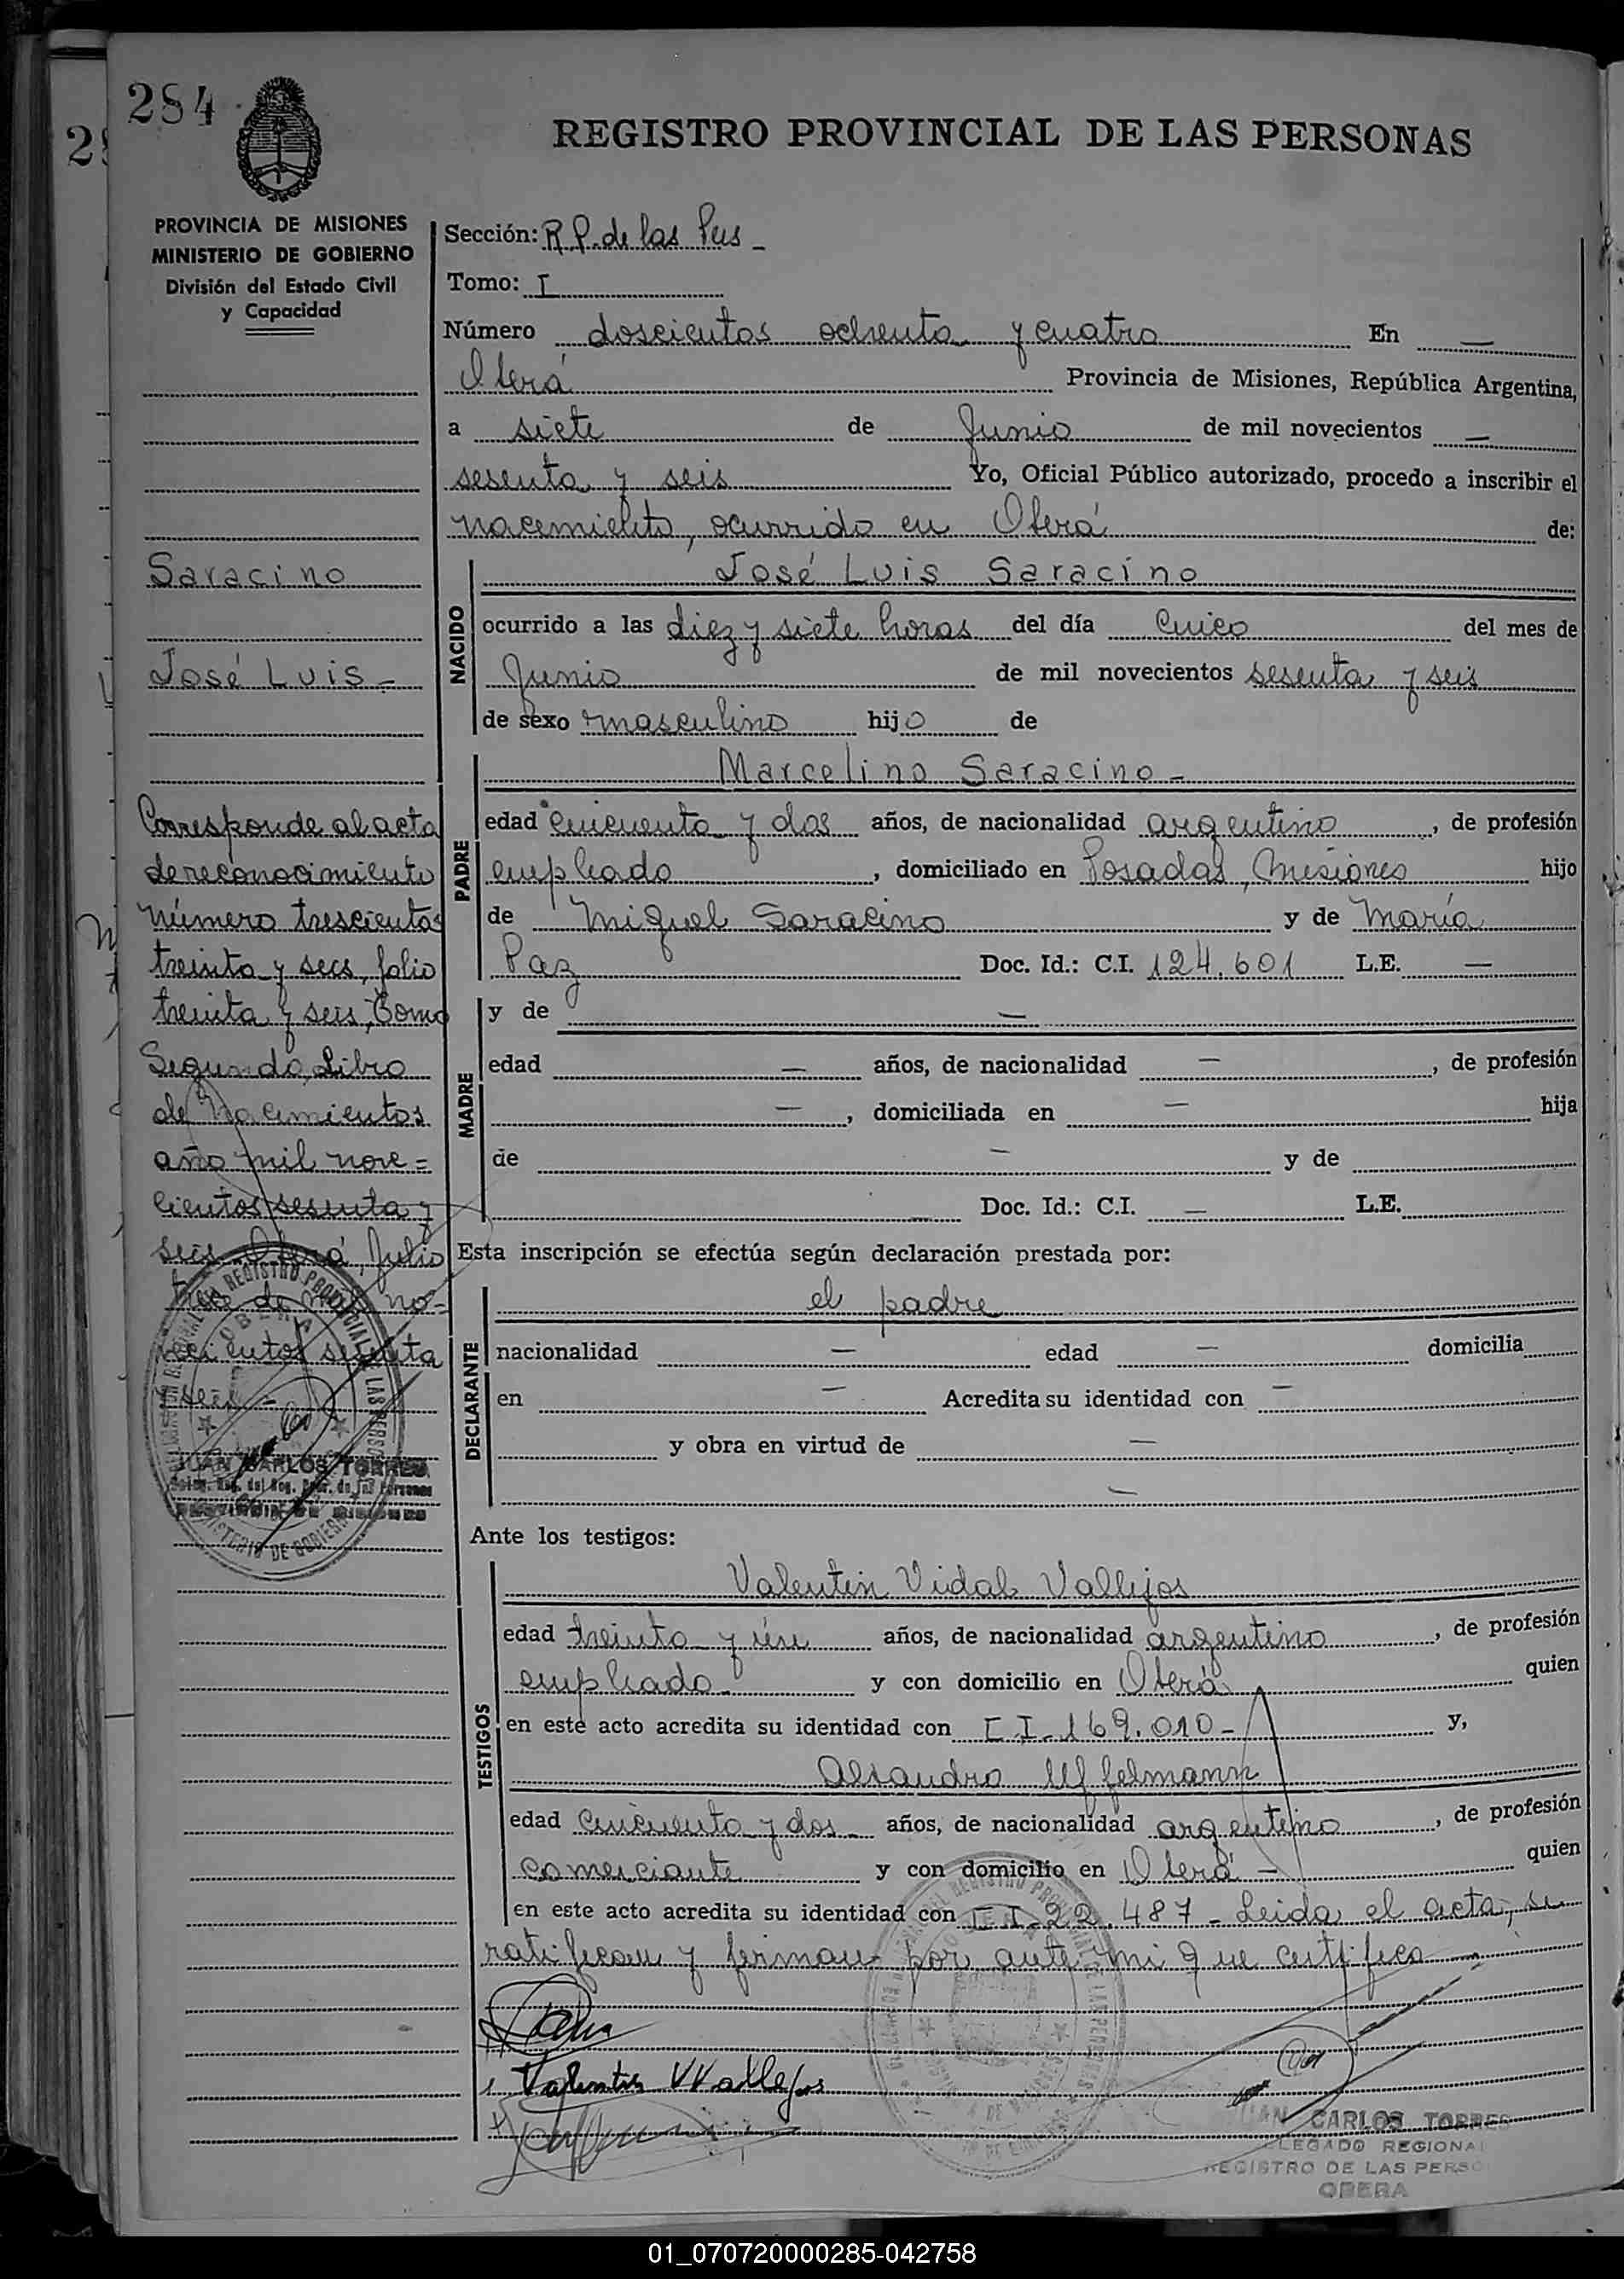 284
REGISTRO PROVINCIAL DE LAS PERSONAS
PROVINCIA DE MISIONES
MINISTERIO DE GOBIERNO
División del Estado Civil
y Capacidad
Saracino
José Luis -
Corresponde al acta
de reconocimiento
número trescientos
treinta y seis, folio
treinta y seis, Tomo
Segundo, Libro
de Nacimientos
año mil nove=
cientos sesenta y
seis. Oberá, Julio
trece de mil no-
vecientos sesenta
y seis -
JUAN CARLOS TORRES
Sección: R.P. de las Pers -
Tomo: I
Número doscientos ochenta y cuatro En —
Oberá Provincia de Misiones, República Argentina,
a siete de Junio de mil novecientos —
sesenta y seis Yo, Oficial Público autorizado, procedo a inscribir el
nacimiento, ocurrido en Oberá de:
NACIDO
José Luis Saracino
ocurrido a las diez y siete horas del día cinco del mes de
Junio de mil novecientos sesenta y seis
de sexo masculino hijo de
PADRE
Marcelino Saracino -
edad cincuenta y dos años, de nacionalidad argentino, de profesión
empleado, domiciliado en Posadas, Misiones hijo
de Miguel Saracino y de María
Paz Doc. Id.: C.I. 124.601 L.E. —
MADRE
y de —
edad — años, de nacionalidad —, de profesión
—, domiciliada en — hija
de — y de
Doc. Id.: C.I. — L.E.
Esta inscripción se efectúa según declaración prestada por:
DECLARANTE
el padre
nacionalidad — edad — domicilia
en — Acredita su identidad con —
y obra en virtud de —
—
Ante los testigos:
TESTIGOS
Valentin Vidal Vallejos
edad treinta y un años, de nacionalidad argentino, de profesión
empleado y con domicilio en Oberá quien
en este acto acredita su identidad con C I - 169.010 - y,
edad cincuenta y dos años, de nacionalidad argentino, de profesión
comerciante y con domicilio en Oberá - quien
en este acto acredita su identidad con C I - 22.487 - Leida el acta, se
ratifican y firman por ante mi que certifico
Valentin V Vallejos
JUAN CARLOS TORRES
DELEGADO REGIONAL
REGISTRO DE LAS PERSO
OBERA
01_070720000285-042758